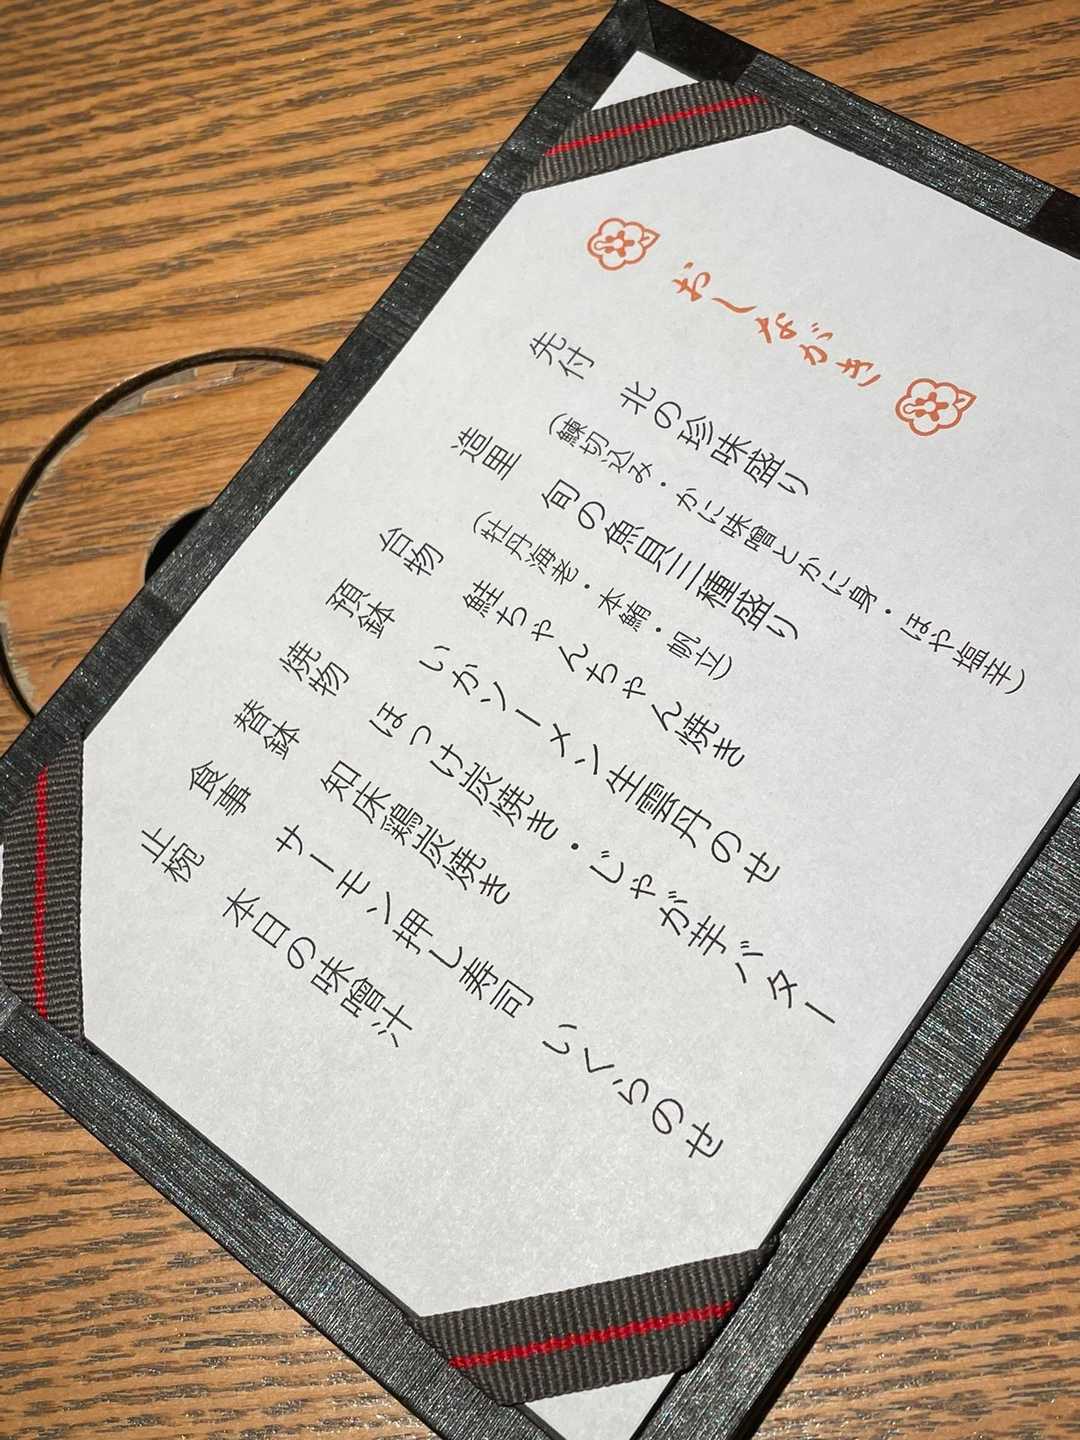 おしながき
先付 北の珍味盛り
(鰊切込み・かに味噌とかに身・ほや塩辛)
造里 旬の魚貝三種盛り
(牡丹海老・本鮪・帆立)
台物 鮭ちゃんちゃん焼き
預鉢 いかソーメン生雲丹のせ
焼物 ほっけ炭焼き・じゃが芋バター
替鉢 知床鶏炭焼き
食事 サーモン押し寿司 いくらのせ
止椀 本日の味噌汁